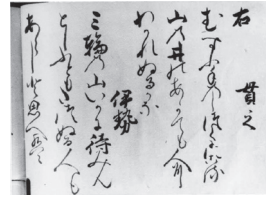 右　貫之
むすふ手のしつくににこる
山の井のあかても人に
わかれぬるかな
伊勢
三輪の山いかに待みん
としふともたつぬる人も
あらしと思へは